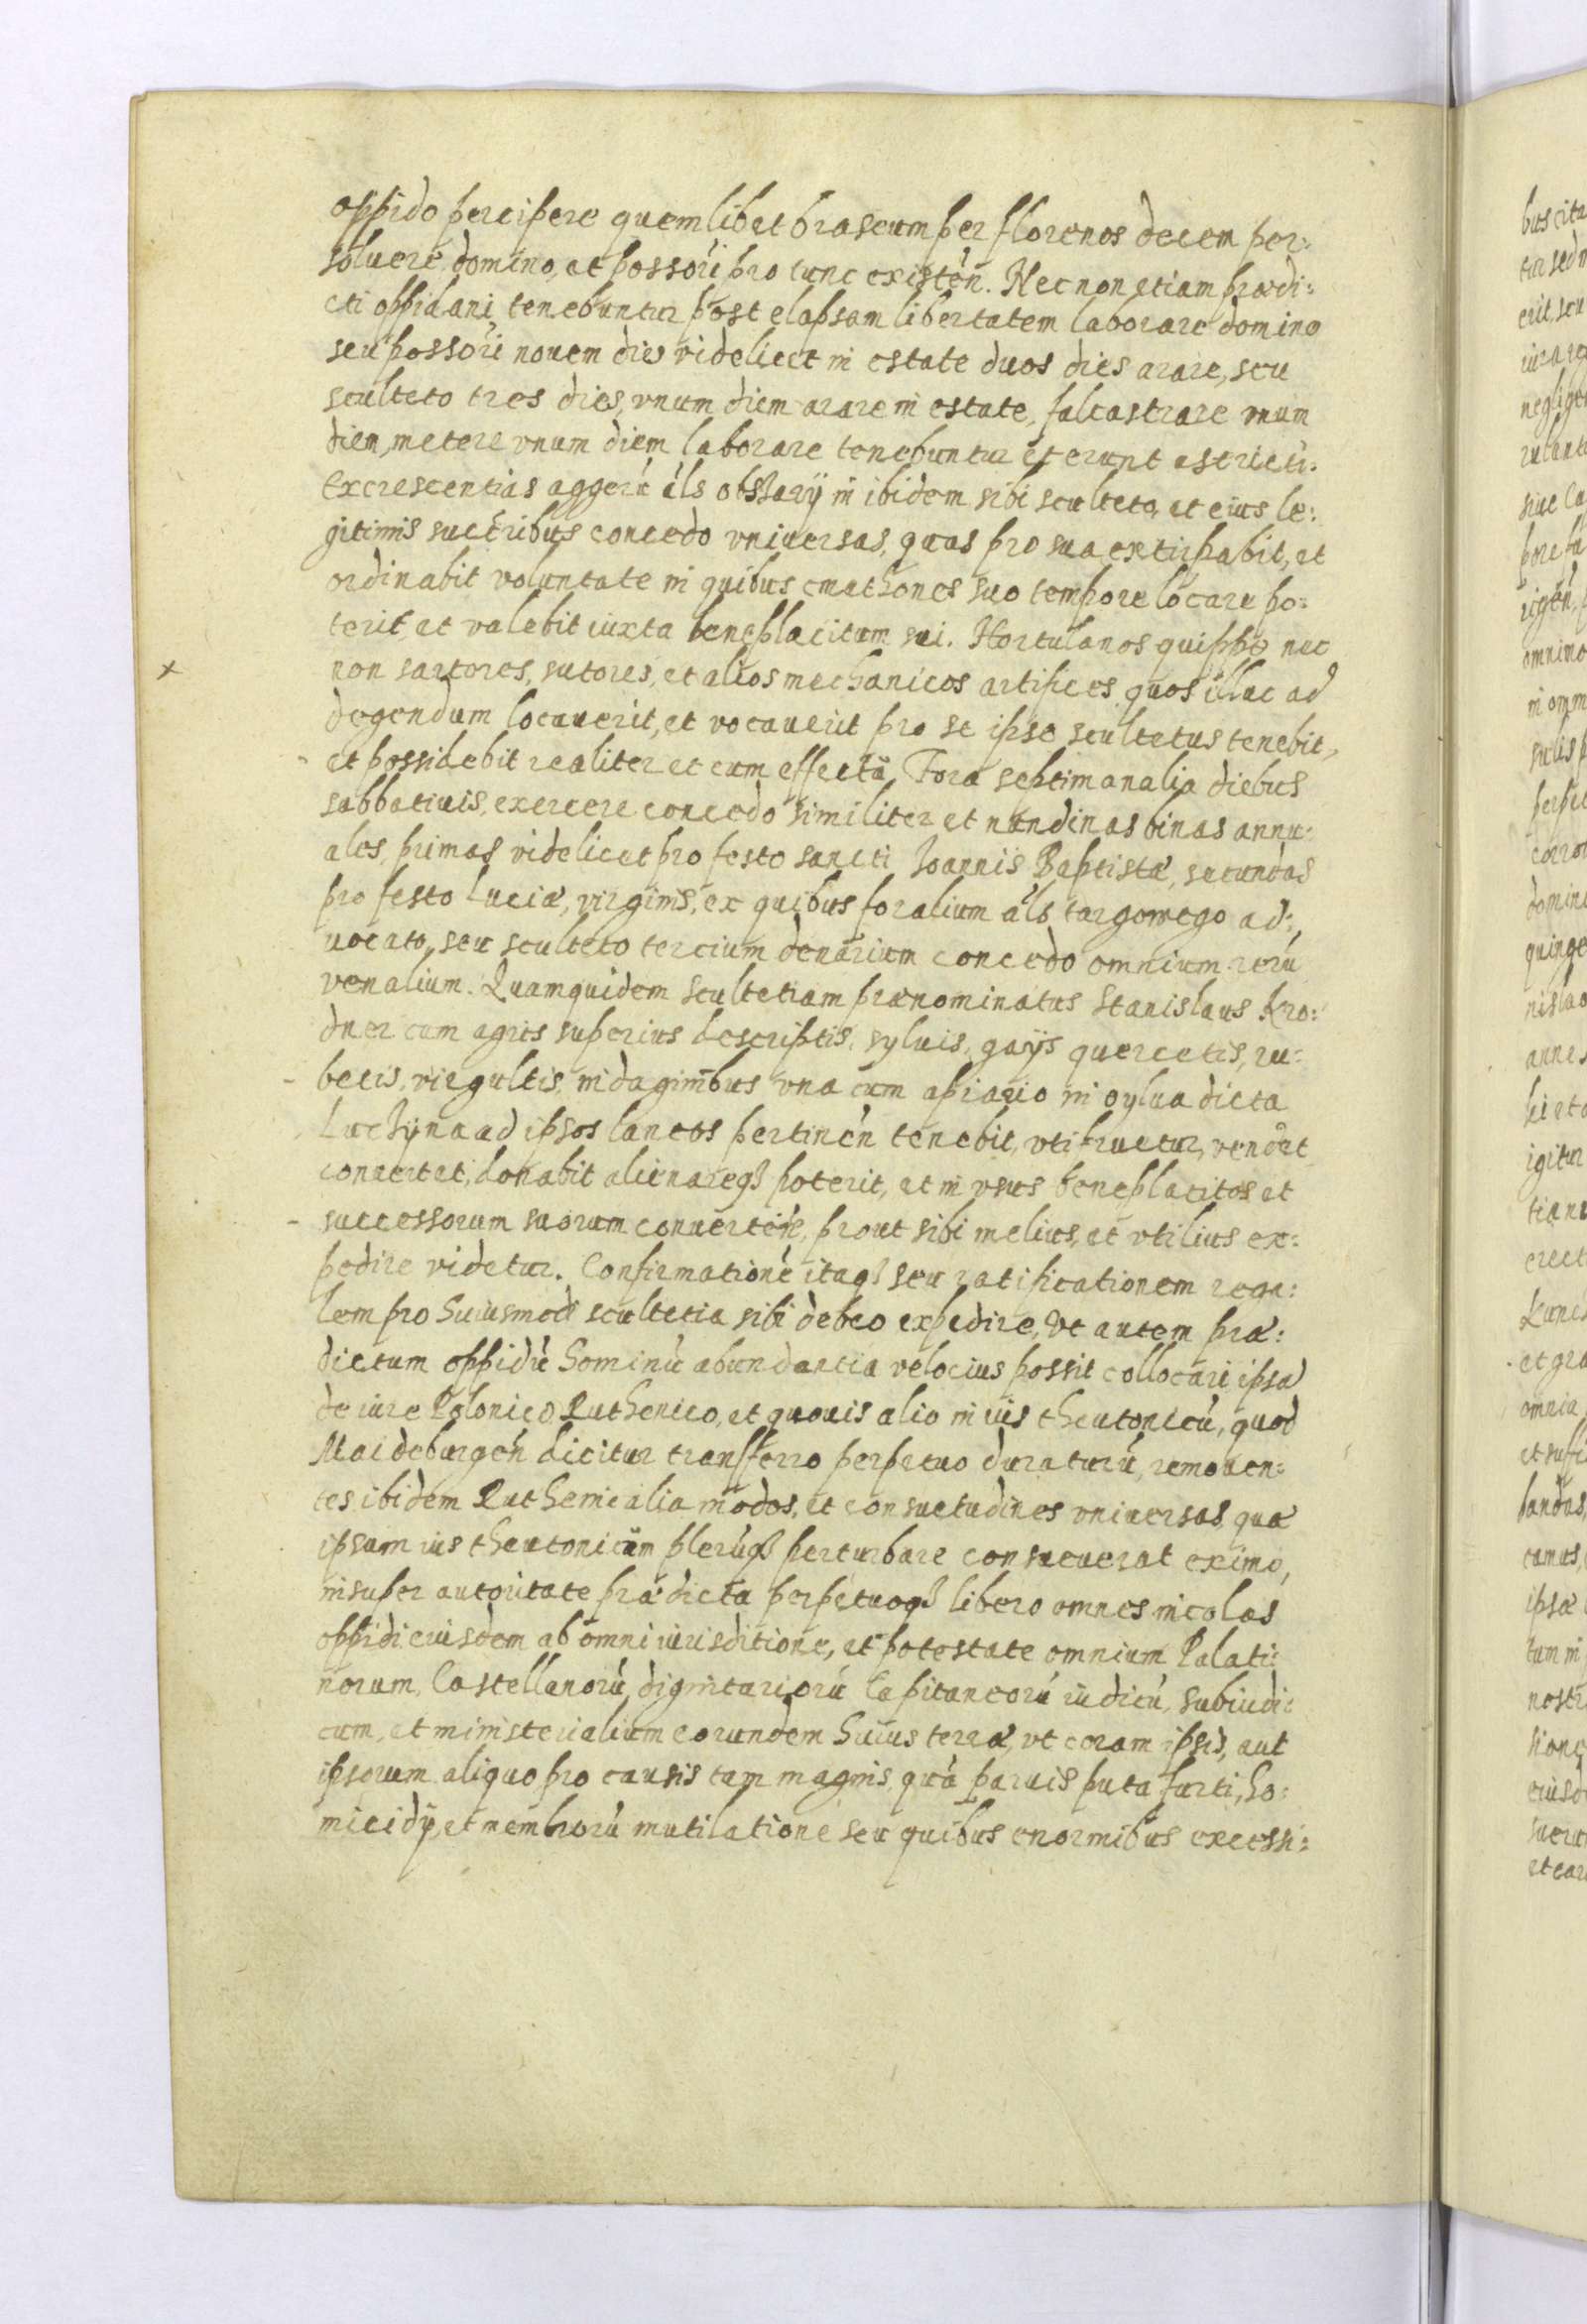 oppido percipere quemlibet braseum per florenos decem per:
soluere domino, et possori pro tunc existén. Necnon etiam prædi:
cti oppidani tenebuntur post elapsam libertatem laborare domino
seu possori nouem dies videlicet in estate duos dies arare, seu
sculteto tres dies, vnum diem arare in estate, falcastrare vnum
diem, metere vnum diem laborare tenebuntur et erunt astricti.
Excrescentias aggerú áls obszary in ibidem sibi sculteto et eius le:
gitimis succribus concedo vniuersas, quas pro sua extirpabit, et
ordinabit voluntate in quibus cmethones suo tempore locare po:
terit, et valebit iuxta beneplacitum sui. Hortulanos quippe nec
non sartores, sutores, et alios mechanicos artifices quos illuc ad
degendum locauerit, et vocauerit pro se ipso scultetus tenebit,
et possidebit realiter et cum effectu. Fora septimanalia diebus
sabbatiuis, exercere concedo similiter et nundinas binas annu:
ales, primas videlicet pro festo sancti Joannis Baptistæ, secundas
pro festo Luciæ, virginis, ex quibus foralium áls targowego ad:
uocato, seu sculteto tercium denarium concedo omnium rerú
venalium. Quamquidem scultetiam prænominatus Stanislaus Kro:
dner cum agris superius descriptis, syluis, gays quercetis, ru:
betis, virgultis, indaginibus vna cum apiario in sylua dicta
ad ipsos laneos pertinén tenebit, vti fruetur, vendet
conuertet, donabit alienareq3 poterit, et in vsus beneplacitos et
successorum suorum conuertére, prout sibi melius, et vtilius ex:
pedire videtur. Confirmationé itaq3 seu ratificationem rega:
lem pro huiusmodi scultetia sibi debeo expedire, Vt autem præ:
dictum oppidú hominú abundantia velocius possit collocari ipsa
de iure Polonico Ruthenico, et quouis alio in ius theutonicú, quod
Maideburgén dicitur transferro perpetuo duraturú, remouen:
tes ibidem Ruthenicalia modos, et consuetudines vniuersas quæ
ipsum ius theutonicum plerúq3 perturbare consueuerat eximo,
insuper autoritate prædicta perpetuoq3 libero omnes incolas
oppidi eiusdem ab omni iurisditione, et potestate omnium Palati:
norum, Castellanorú, dignitariorú Capitaneorú iudicú, subiudi:
cum, et ministerialium eorundem huius terræ, vt coram ipsis, aut
ipsorum aliquo pro causis tam magnis, quá paruis puta furti, ho:
micidy, et membrorú mutilatione seu quibus enormibus excessi: